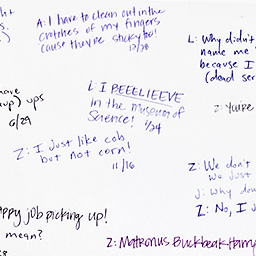 A: I have to clean out in the
crotches of my fingers
cause they're sticky too!
12/28
L: Why didn't
name me
because I
(dead ser
L: I BEEELIEEVE
in the Museum of
Science! 4/24
ups
6/29
Z: You're
Z: I just like cob
but not corn!
11/16
Z: We don't
we just
J: Why don
Z: No, I J
appy job picking up!
mean?
Z: Matronus Buckbeak Harry